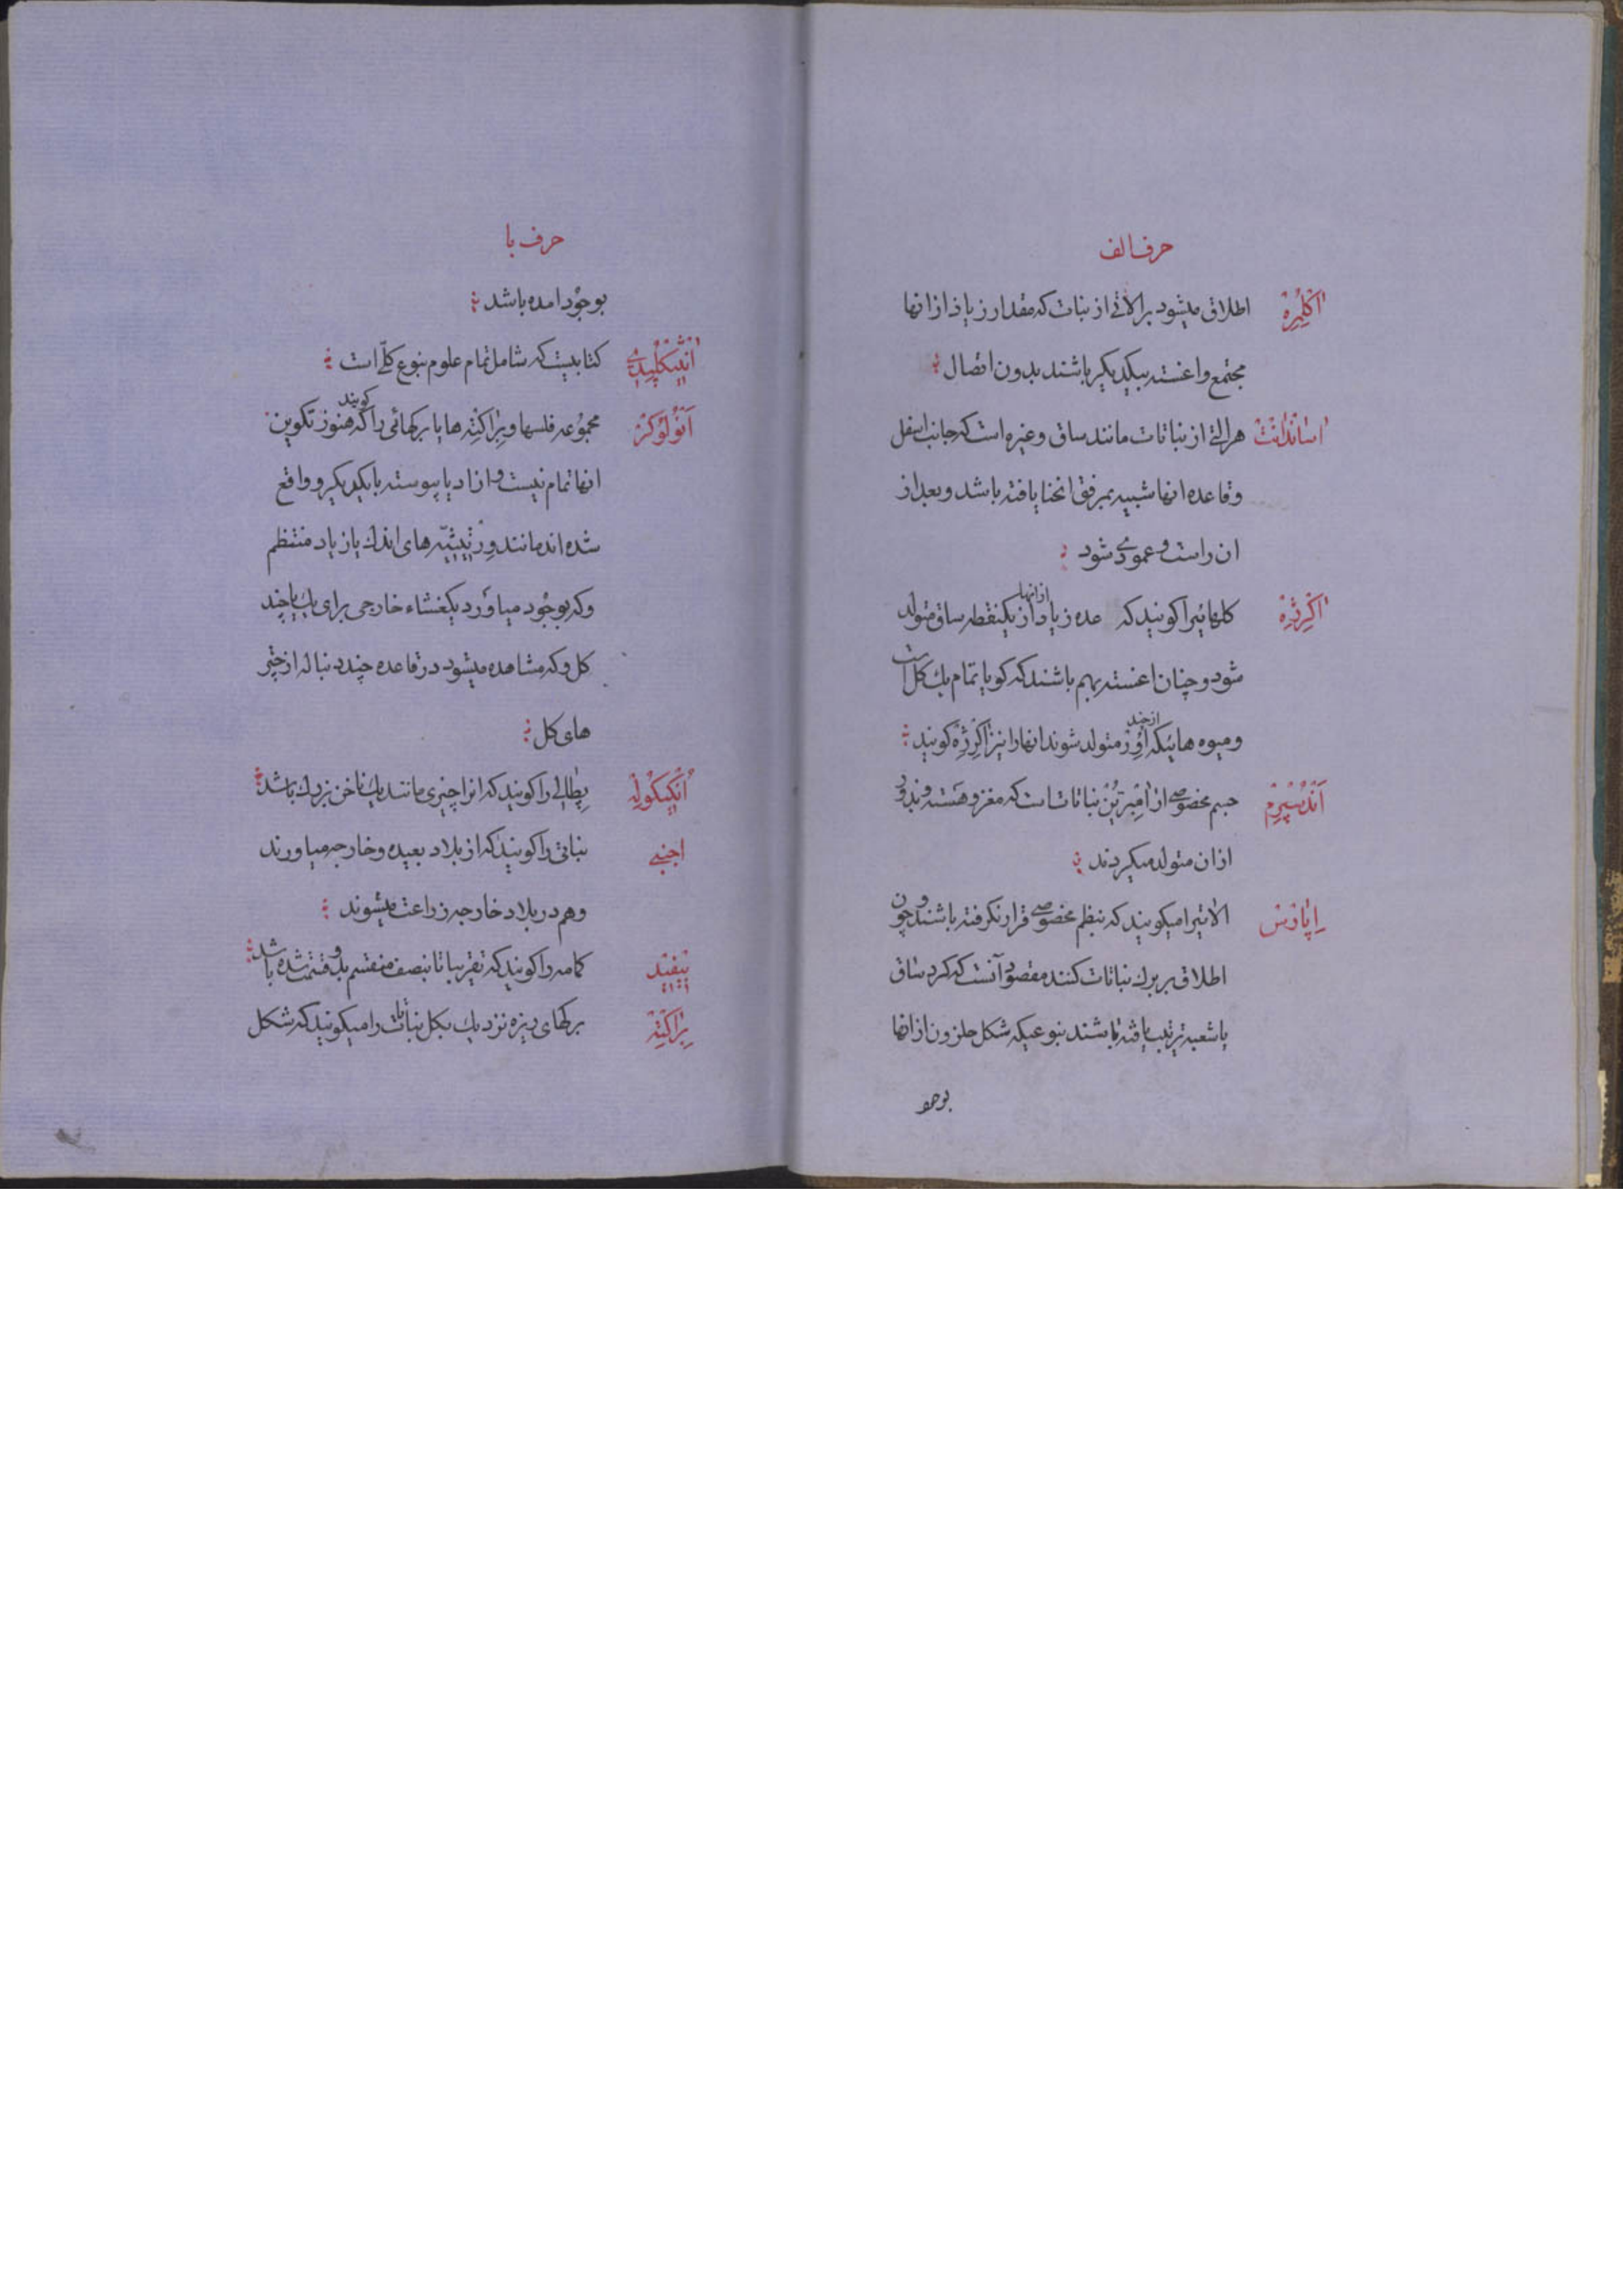 حرف الف
اکلمره اطلاق میشود بر الاتی از نبات که مقدار زیاد از انها
مجتمع و اغشته بیکدیکر باشند بدون اتصال
اساندانت هر التی از نباتات مانند ساق و غیره است که جانب اسفل
و قاعده انها شبیه بمرفق انحنا یافته باشد و بعد از
ان راست و عمودی شود
اکرژه کلهائیرا کویند که عده زیاد از انها از یکنقطه ساق متولد
شود و چنان اغشته بهم باشند که کویا تمام یک کل است
و میوه هائیکه از چند اوِر متولد شوند انها را نیز اکرژه کویند
اندسپرم جسم مخصوصی از امبریُن نباتات است که مغز و هسته و بذور
از ان متولد میکردند
اپارس الاتیرا میکویند که بنظم مخصوصی قرار نکرفته باشند و چون
اطلاق بر برک نباتات کنند مقصود آنست که کرد ساق
یا شعبه ترتیب یافته باشند بنوعیکه شکل حلزون از انها
بوجود
حرف با
بوجود امده باشد
انثیکلپیدی کتابیست که شامل تمام علوم بنوع کلّی است
انوُلوُکر مجموعه فلسها و براکته ها یا برکهائی را کویند که هنوز تکوین
انها تمام نیست و ازاد یا پیوسته بایکدیکر و واقع
شده اند مانند ورتیثیّه های اندک یا زیاد منتظم
و که بوجود میاورد یکغشاء خارجی برای یک یا چند
کل و که مشاهده میشود در قاعده چند دنباله از چتر
های کل
انکیکوله پطالی را کویند که انرا چیزی مانند یک ناخن نزدیک باشد
اجنبی نباتی را کویند که از بلاد بعیده و خارجه میاورند
و هم در بلاد خارجه زراعت میشوند
بیفید کامه را کویند که تقریبا تا بنصف منقسم بدو قسمت شده باشد
براکته برکهای ریزه نزدیک بکل نباتات را میکویند که شکل